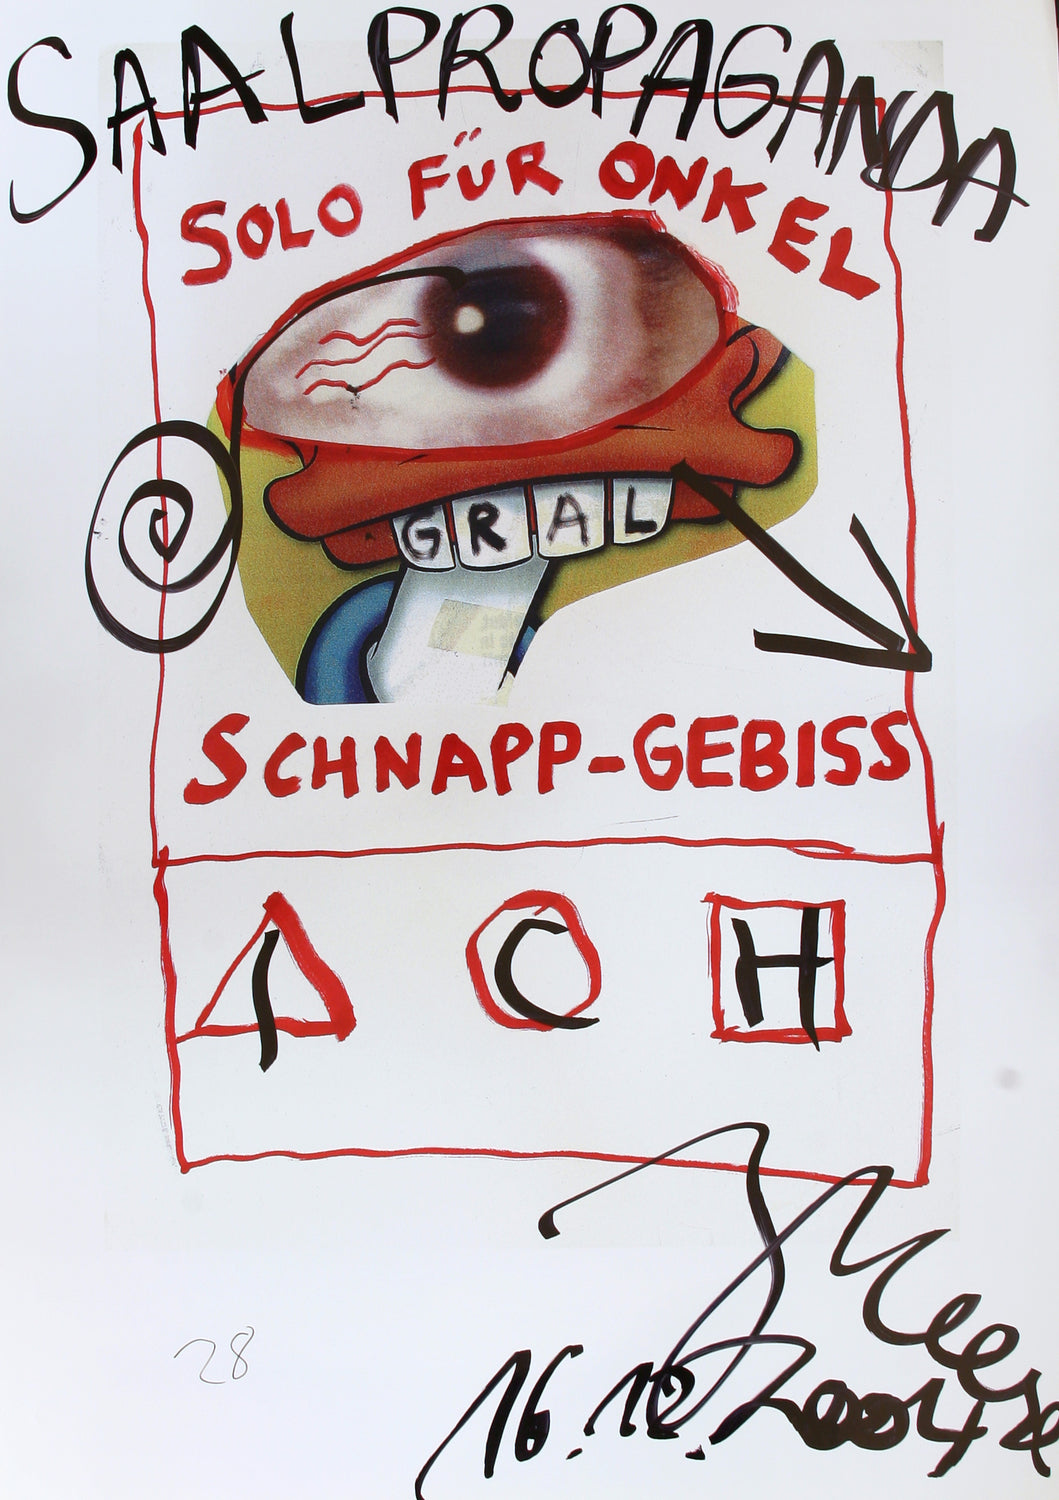 SAALPROPAGANDA
SOLO FÜR ONKEL
GRAL
SCHNAPP-GEBISS
I C H
JMeese
28
16.10.2004